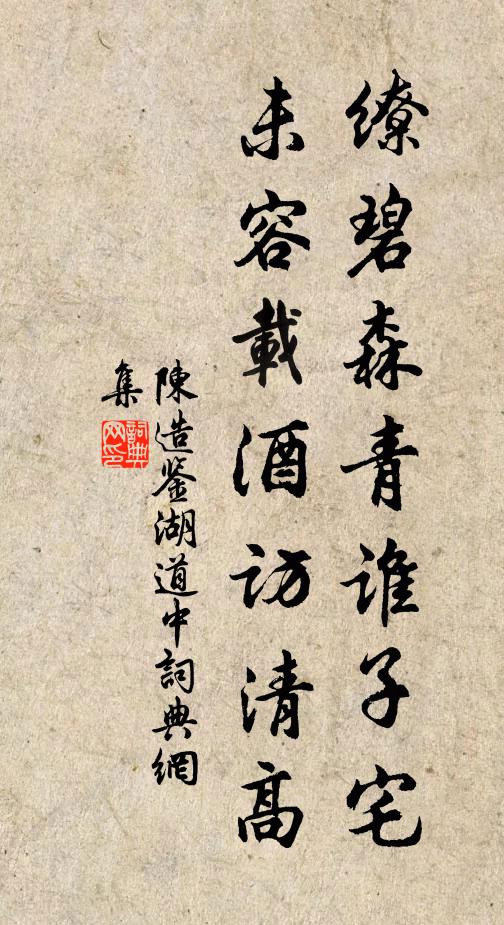 缭碧森青谁子宅
未容載酒访清高
陳造鉴湖道中詞典網
集
詞典
网印